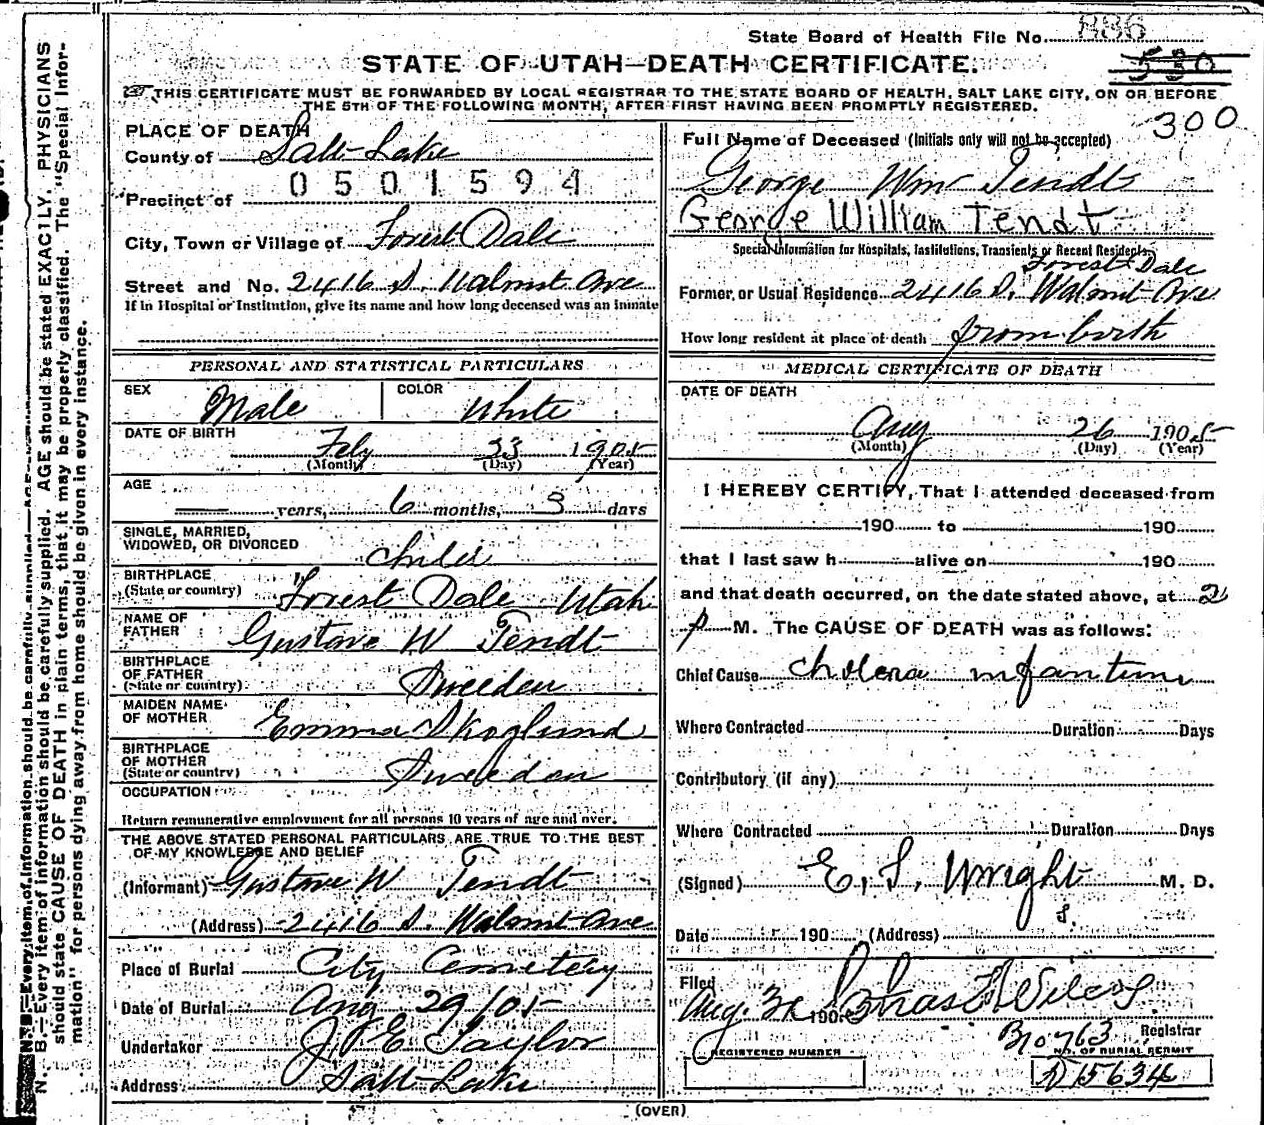 State Board of Health File No. 886
530
STATE OF UTAH—DEATH CERTIFICATE.
THIS CERTIFICATE MUST BE FORWARDED BY LOCAL REGISTRAR TO THE STATE BOARD OF HEALTH, SALT LAKE CITY, ON OR BEFORE
THE 5TH OF THE FOLLOWING MONTH, AFTER FIRST HAVING BEEN PROMPTLY REGISTERED.
300
PLACE OF DEATH
County of Salt Lake
0501594
Precinct of
City, Town or Village of Forest Dale
Street and No. 2416 S. Walnut Ave
If in Hospital or Institution, give its name and how long deceased was an inmate
PERSONAL AND STATISTICAL PARTICULARS
SEX Male COLOR White
DATE OF BIRTH
Feby 23 1905
(Month) (Day) (Year)
AGE
years, 6 months, 3 days
SINGLE, MARRIED,
WIDOWED, OR DIVORCED Child
BIRTHPLACE
(State or country) Forest Dale Utah
NAME OF
FATHER Gustave W Tendt
BIRTHPLACE
OF FATHER
(State or country) Sweeden
MAIDEN NAME
OF MOTHER Emma Skoglund
BIRTHPLACE
OF MOTHER
(State or country) Sweeden
OCCUPATION
Return remunerative employment for all persons 10 years of age and over.
THE ABOVE STATED PERSONAL PARTICULARS ARE TRUE TO THE BEST
OF MY KNOWLEDGE AND BELIEF
(Informant) Gustave W Tendt
(Address) 2416 S. Walnut Ave
Place of Burial City Cemetery
Date of Burial Aug 29/05
Undertaker Taylor
Address Salt Lake
Full Name of Deceased (Initials only will not be accepted)
George Wm Tendt
George William Tendt
Special Information for Hospitals, Institutions, Transients or Recent Residents.
Forest Dale
Former or Usual Residence 2416 S. Walnut Ave
How long resident at place of death from birth
MEDICAL CERTIFICATE OF DEATH
DATE OF DEATH
Aug 26 1905
(Month) (Day) (Year)
I HEREBY CERTIFY, That I attended deceased from
190 to 190
that I last saw h alive on 190
and that death occurred, on the date stated above, at 2
P M. The CAUSE OF DEATH was as follows:
Chief Cause cholera infantum
Where Contracted Duration Days
Contributory (if any)
Where Contracted Duration Days
(Signed) E. S. Wright M. D.
Date 190 (Address)
Filed
Aug. 190
Registrar
REGISTERED NUMBER
NO. OF BURIAL PERMIT
15634
(OVER)
N. B.—Every item of information should be carefully supplied. AGE should be stated EXACTLY. PHYSICIANS
should state CAUSE OF DEATH in plain terms, that it may be properly classified. The "Special Infor-
mation" for persons dying away from home should be given in every instance.